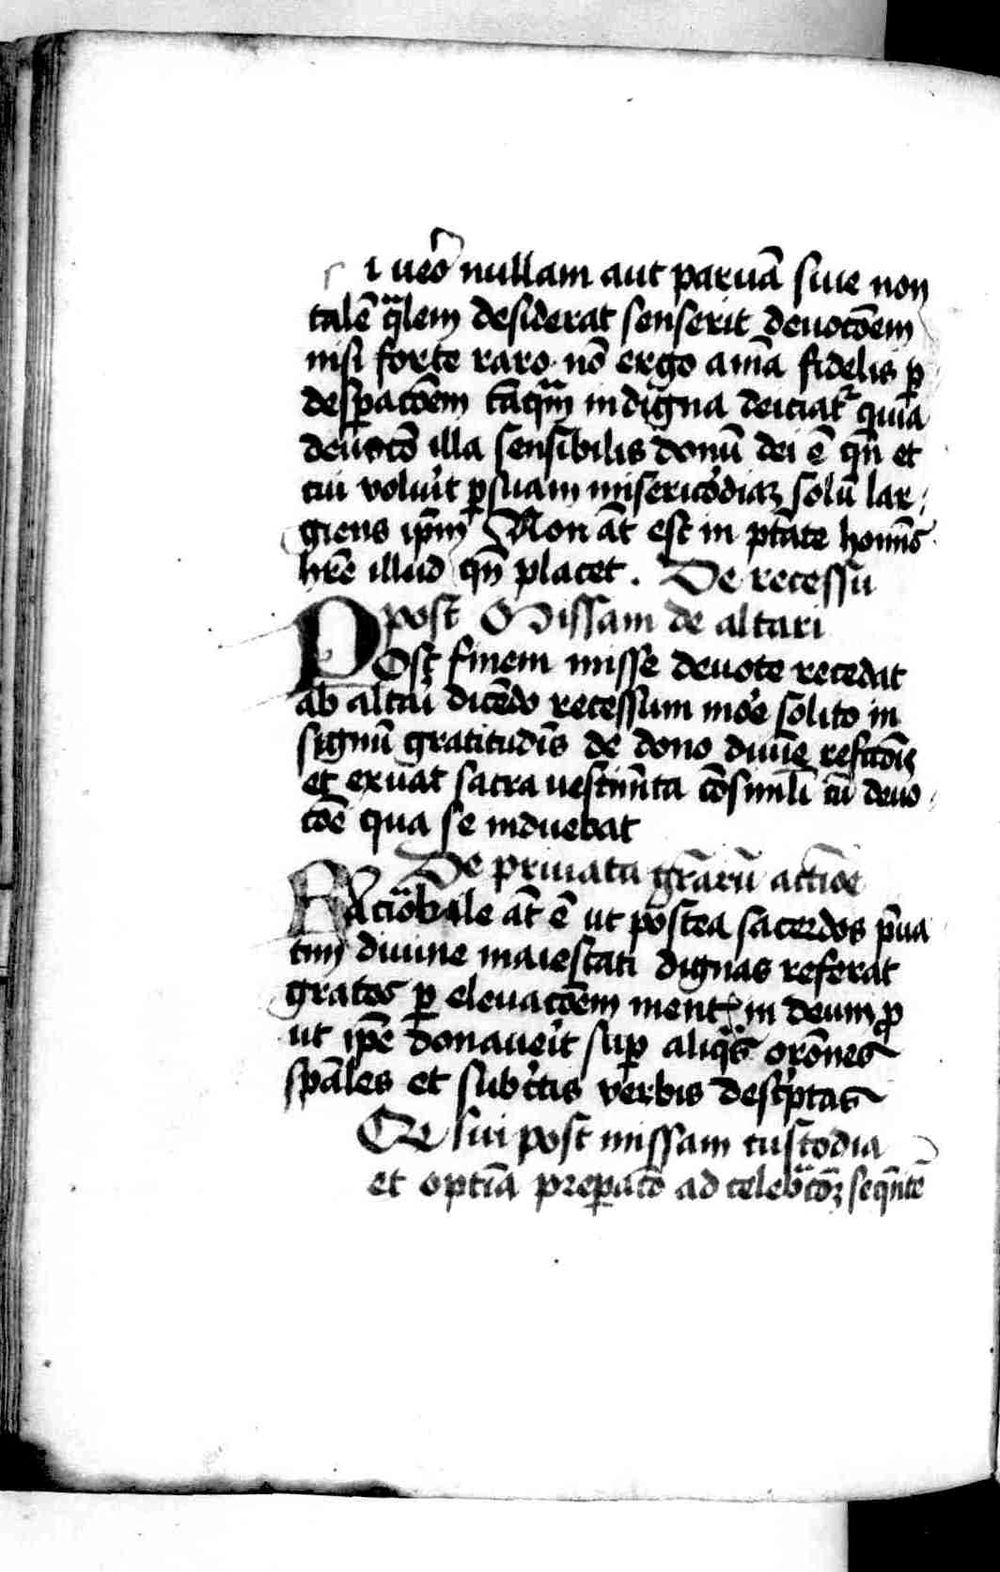 i ueo nullam aut paruā siue non
talē qlem desiderat senserit deuotōem
nisi forte raro nō ergo aīa fidelis p
despacōem tāqm indigna deiciat quia
deuotō illa sensibilis donū dei ē qn et
cui voluit psuam misericordiaz solū lar
giens ipm Non āt est in ptāte homīs
hrē illud qn placet . De recessu
post Missam de altari
Post finem misse deuote recedat
ab altari dicēdo recessum moe solito in
signū gratitudīs de dono diuīe refctōīs
et exuat sacra vestimēta cōsimili cū deuo
cōe qua se induebat
De priuata grārū actiōe
Racōbile āt ē ut postea sacerdos pua
tim diuine maiestati dignas referat
grates p eleuacōem ment in deum p
ut ipē donaueit sup aliqs orōnes
spāles et subctis verbis descptas
De sui post missam custodia
et optīa prepacō ad celebcōz seqntē